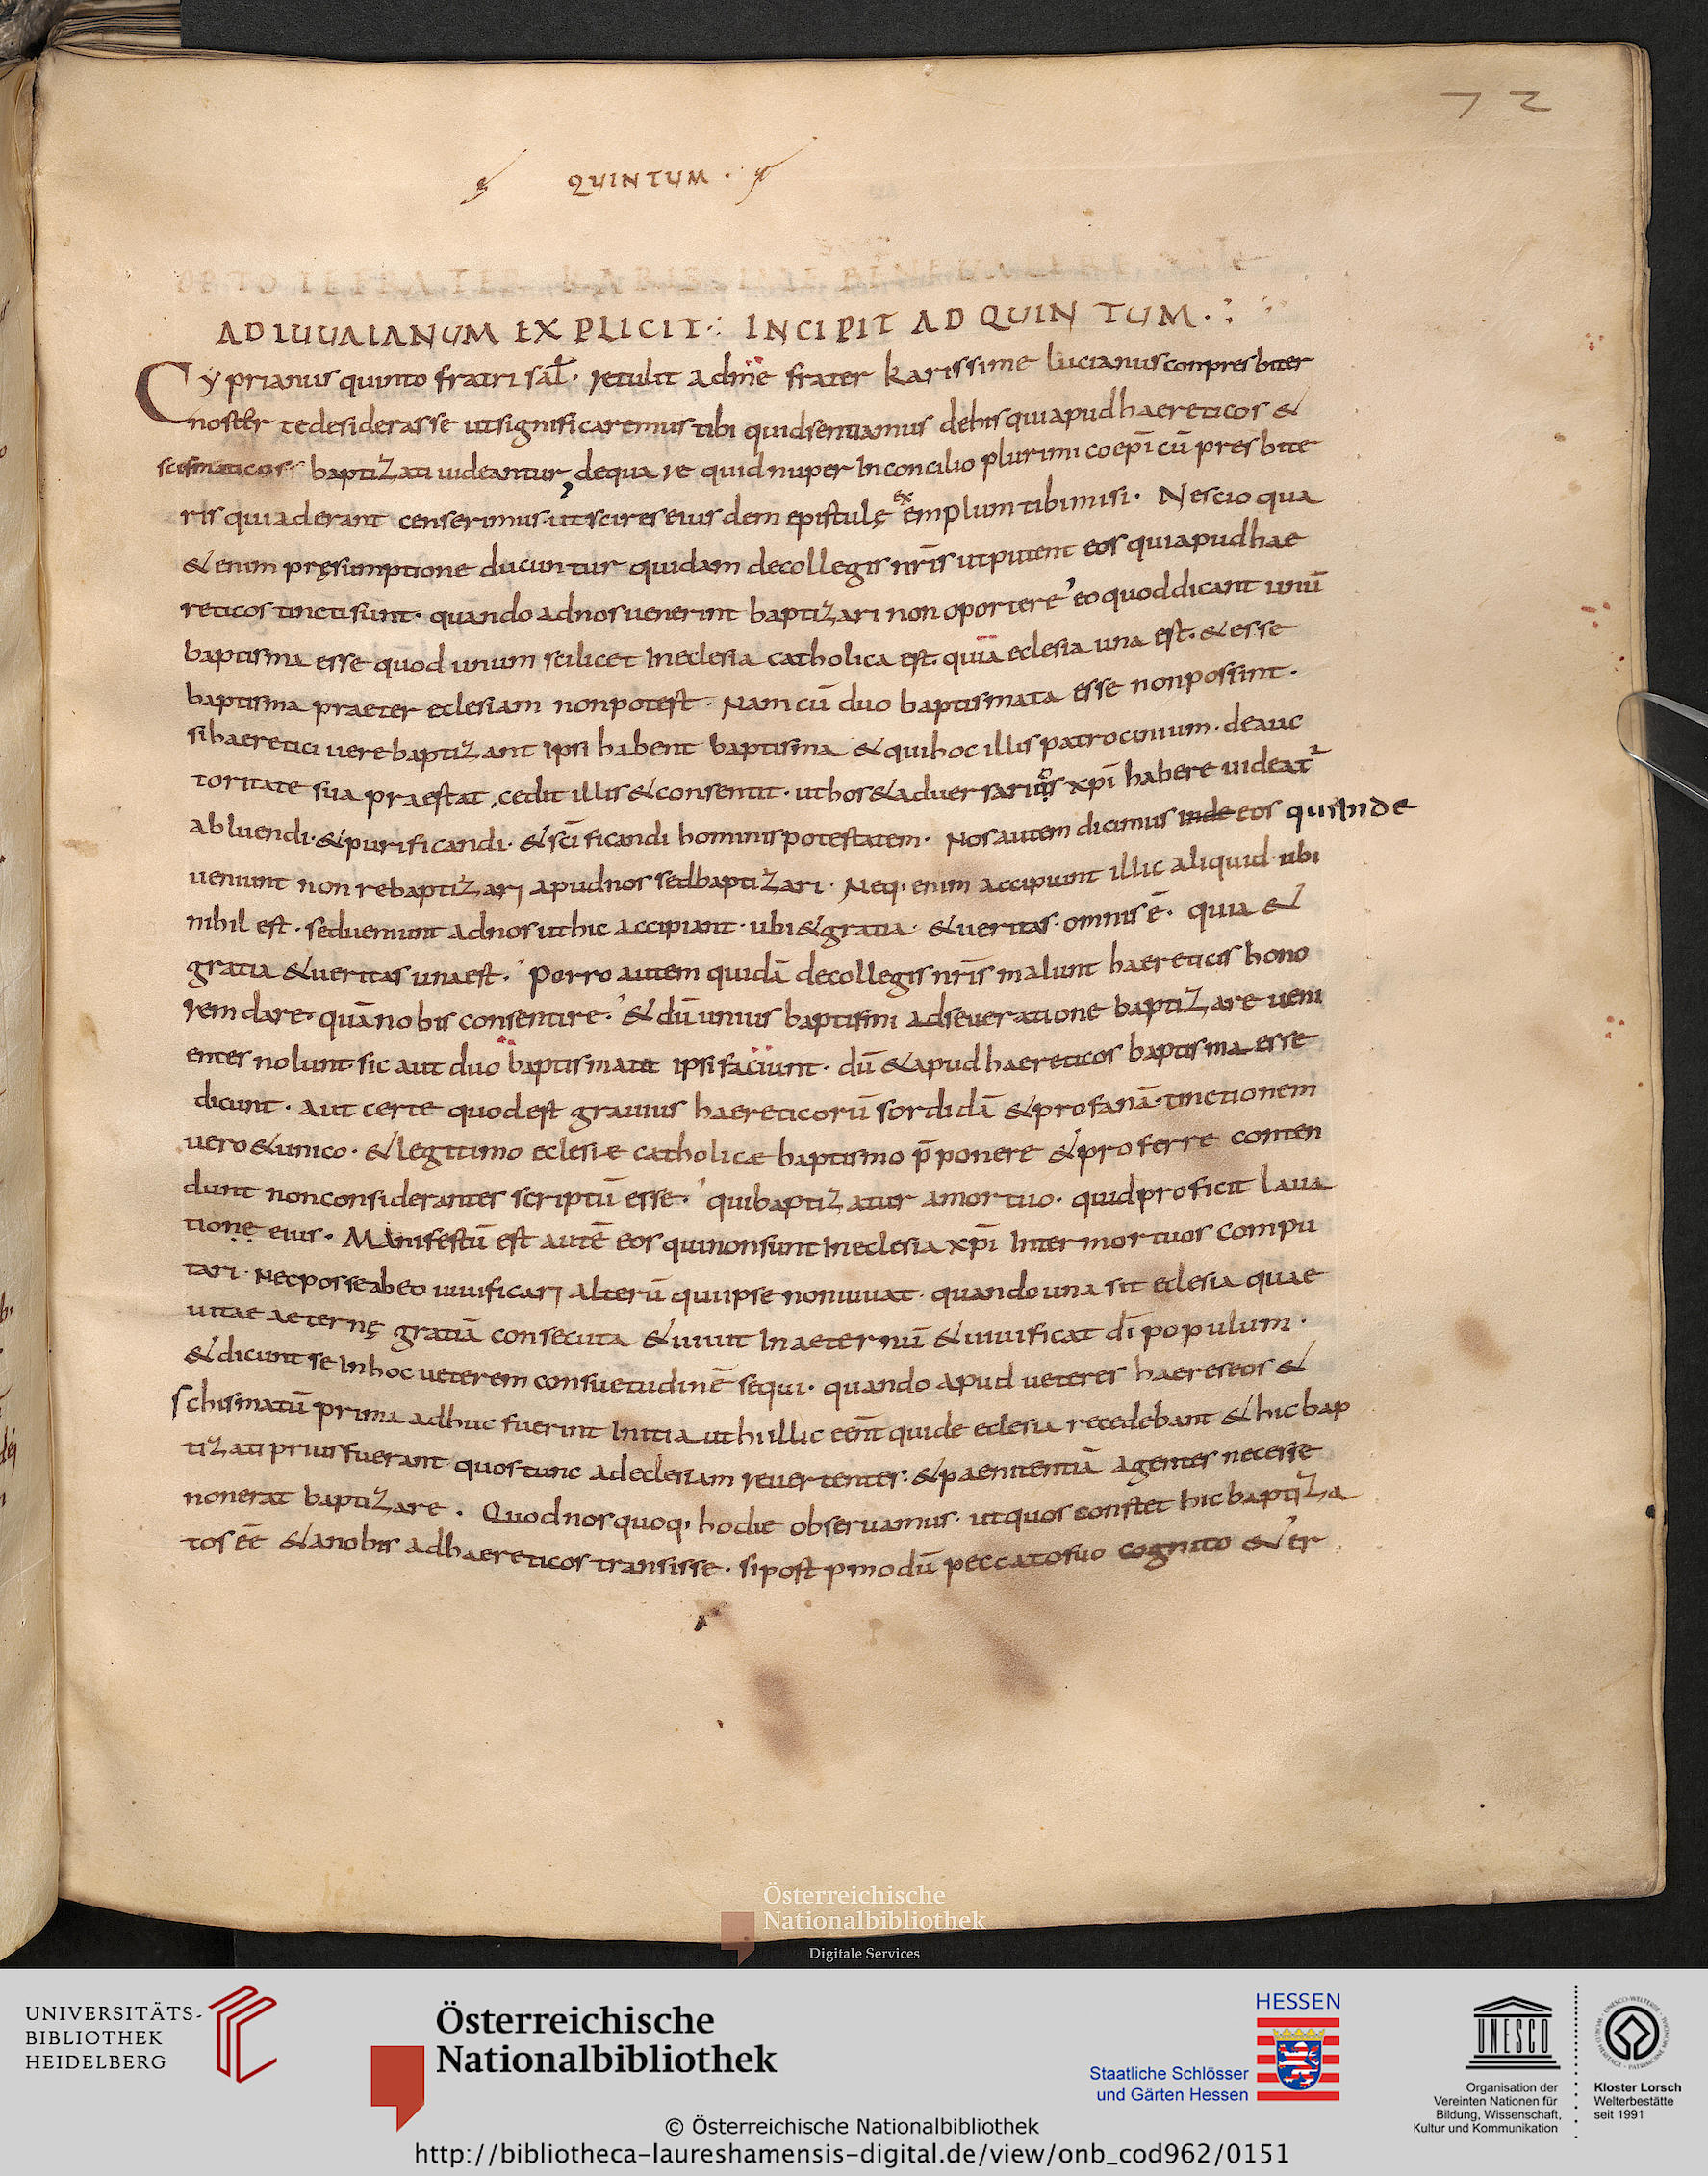 72
QUINTUM .
AD IUUAIANUM EXPLICIT INCIPIT AD QUINTUM
Cyprianus quinto fratri sal̄. retulit adme frater karissime lucianus conpresbiter
noster te desiderasse ut significaremus tibi quid sentiamus dehis qui apud haereticos &
scismaticos baptizati uideantur, dequa re quid nuper In concilio plurimi coepī cū presbite
ris qui aderant censerimus ut scires eiusdem epistulę exemplum tibi misi. Nescio qua
& enim pręsumptione ducuntur quidam decollegis nrīs ut putent eos qui apud hae
reticos tincti sunt. quando adnos uenerint baptizari non oportere eo quod dicant unū
baptisma esse quod unum scilicet In eclesia catholica est. quia eclesia una est. & esse
baptisma praeter eclesiam non potest. Nam cū duo baptismata esse non possint.
si haeretici uere baptizant Ipsi habent baptisma & qui hoc illis patrocinium. deauc
toritate sua praestat, cedit illis & consentit. ut hos & aduersarios xpī habere uideat
abluendi. & purificandi. & sc̄ificandi hominis potestatem. Nos autem dicimus inde eos qui Inde
ueniunt non rebaptizari apud nos sed baptizari. Neq; enim accipiunt illic aliquid. ubi
nihil est. sed ueniunt adnos ut hic accipiant. ubi & gratia. & ueritas. omnis ē. quia &
gratia & ueritas una est. Porro autem quidā decollegis nrīs malunt haereticis hono
rem dare. quā nobis consentire. & dū unius baptismi adseueratione baptizare ueni
entes nolunt. sic aut duo baptismata ipsi faciunt. dū & apud haereticos baptisma esse
dicunt. Aut certe quod est grauius haereticorū sordidā & profanā tinctionem
uero & unico. & legitimo eclesiæ catholicæ baptismo p̄ponere & proferre conten
dunt non considerantes scriptū esse. qui baptizatur amortuo. quid proficit laua
tione eius. Manifestū est autē eos qui non sunt In eclesia xpī Inter mortuos compu
tari. Nec posse ab eo uiuificari alterū qui ipse non uiuat. quando una sit eclesia quae
uitae aeternę gratiā consecuta & uiuit In aeternū & uiuificat dī populum.
& dicunt se In hoc ueterem consuetudinē sequi. quando apud ueteres haereseos &
schismatū prima adhuc fuerint Initia ut hi illic eēnt qui de eclesia recedebant & hic bap
tizati prius fuerant quos tunc ad eclesiam reuertentes. & paenitentiā agentes necesse
non erat baptizare. Quod nos quoq; hodie obseruamus. ut quos constet hic baptiza
tos eē & anobis ad haereticos transisse. si post pmodū peccato suo cognito & er
Österreichische
Nationalbibliothek
Digitale Services
UNIVERSITÄTS-
BIBLIOTHEK
HEIDELBERG
Österreichische
Nationalbibliothek
HESSEN
Staatliche Schlösser
und Gärten Hessen
UNESCO
Organisation der
Vereinten Nationen für
Bildung, Wissenschaft,
Kultur und Kommunikation
Kloster Lorsch
Welterbestätte
seit 1991
© Österreichische Nationalbibliothek
http://bibliotheca-laureshamensis-digital.de/view/onb_cod962/0151